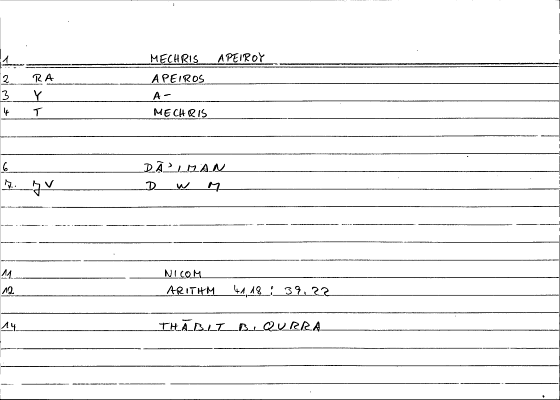 1 MECHRIS APEIROY
2 RA APEIROS
3 Y A-
4 T MECHRIS
6 DĀ'IMAN
7. JV D W M
11 NICOM
12 ARITHM 41,18 : 39.22
14 THĀBIT B. QURRA